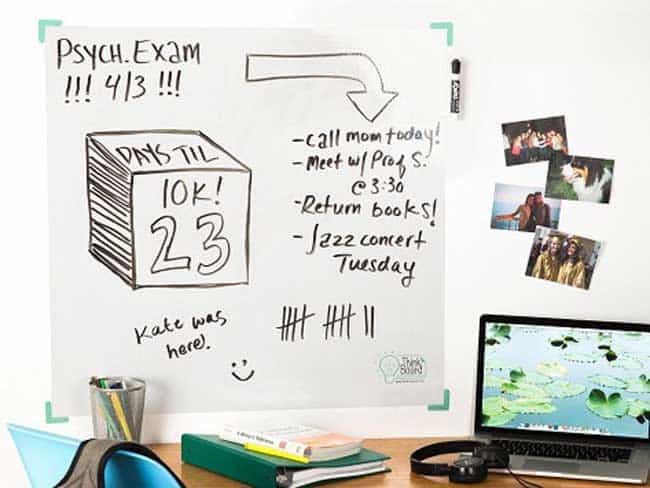 PSYCH. EXAM
!!! 4/3 !!!
-Call mom today!
-Meet w/ Prof S.
@ 3:30
-Return books!
-Jazz concert
Tuesday
DAYS TIL
10K!
23
Kate was
here!
Think
Board
EXPO